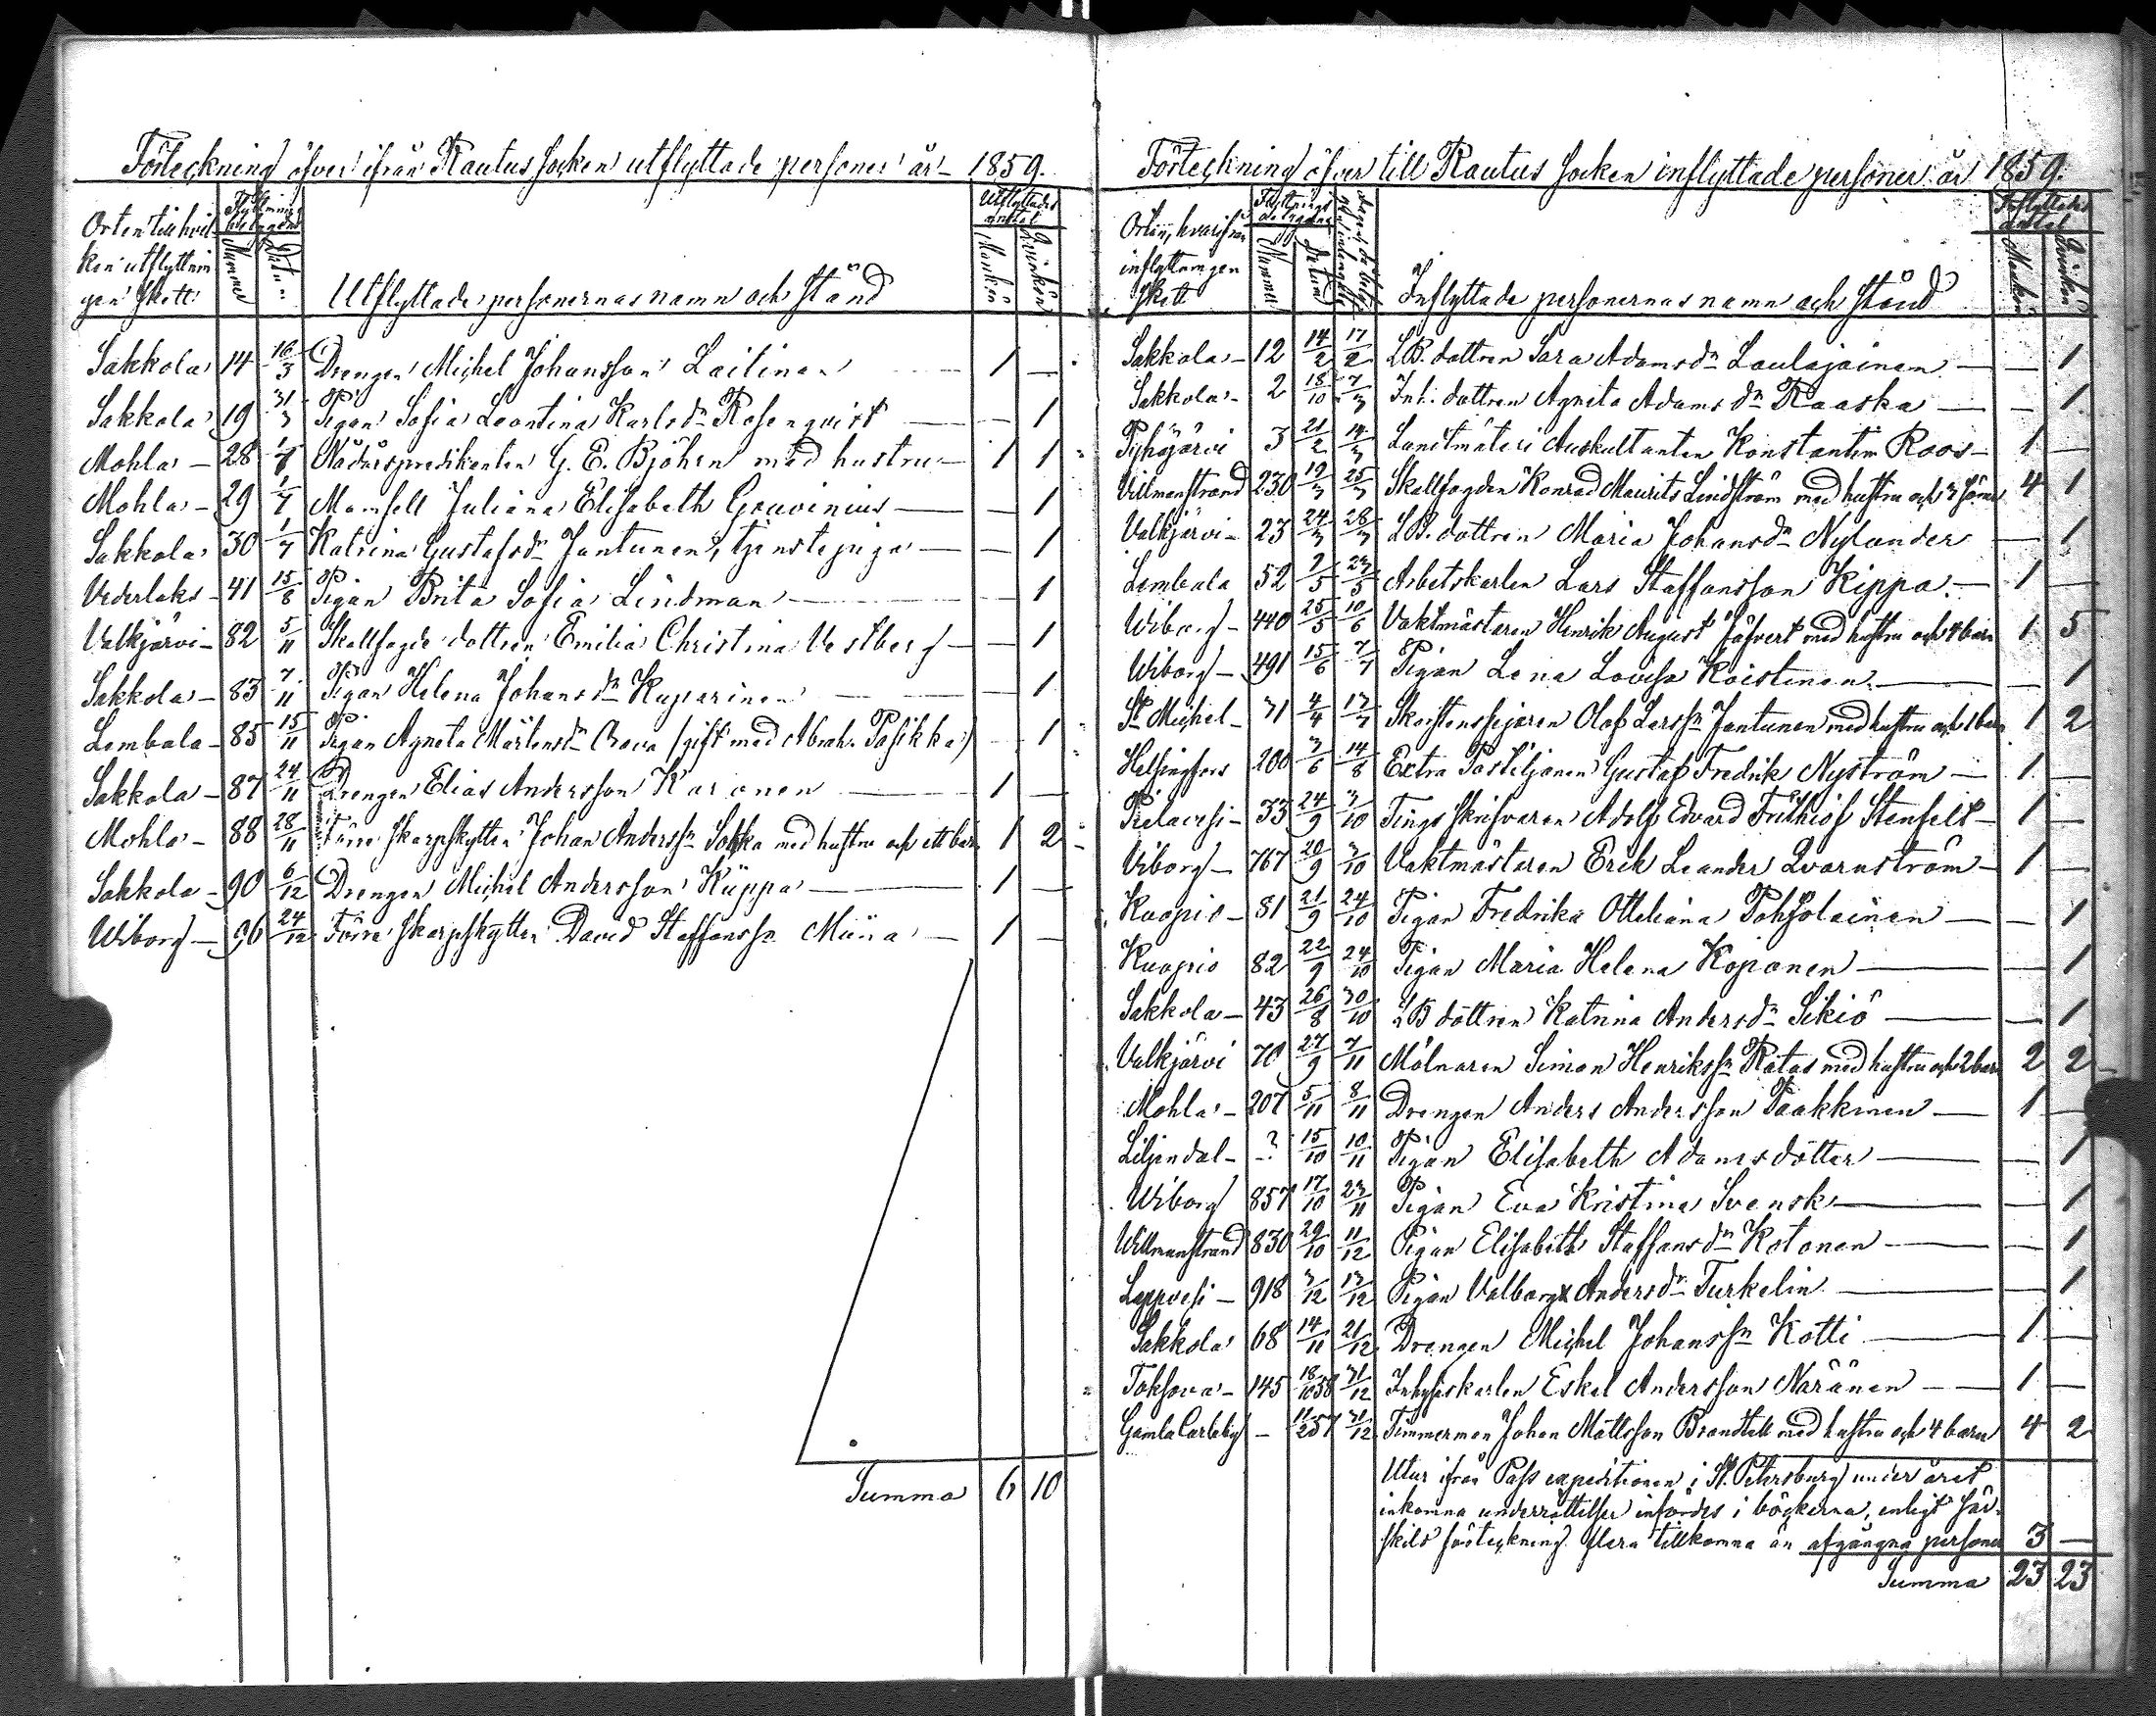 Förteckning öfver ifrån Rautus socken utflyttade personer år 1859.
Orten till hvilken utflyttningen skett
Flyttnings betygens
Nummer
Datum
Utflyttade personernas namn och stånd
Utflyttades antal
Mankön
Qvinkön
Sakkola 14 16/3 Drengen Michel Johansson Lailinen 1 —
Sakkola 19 31/3 Pigan Sofia Leontina Karlsdr Rosenqvist — 1
Mohla 28 Nådårspredikanten G. E. Björn med hustru 1 1
Mohla 29 1/7 Mamsell Juliana Elisabeth Gouvinius — 1
Sakkola 30 1/7 Katrina Gustafsdr Jantunen, tjenstepiga — 1
Vederlaks 41 15/8 Pigan Brita Sofia Lindman — 1
Valkjärvi 82 5/11 Skallfogde dottren Emilia Christina Vestberg — 1
Sakkola 83 7/11 Pigan Helena Johansdr Kuparinen — 1
Lembala 85 15/11 Pigan Agneta Mårtensdr (gift med Abrah. Pasikka) — 1
Sakkola 87 24/11 Drengen Elias Andersson Karonen 1 —
Mohla 88 28/11 Förre skarpskytten Johan Anderssn Sokka med hustru och ett barn 1 2
Sakkola 90 6/12 Drengen Michel Andersson Küppa 1 —
Wiborg 96 24/12 Förre skarpskytten David Staffanssn Müna 1 —
Summa 6 10
Förteckning öfver till Rautus socken inflyttade personer år 1859.
Orten, hvarifrån inflyttningen skett
Flyttnings betygens
Nummer
Datum
Inflyttade personernas namn och stånd
Inflyttades antal
Mankön
Qvinkön
Sakkola 12 14/2 17/2 LB. dottren Sara Adamsdr Laulajainen — 1
Sakkola 2 18/10 7/3 Inh. dottren Agneta Adamsdr Raaska — 1
Pyhäjärvi 3 21/2 14/3 Landtmäteri Auskultanten Konstantin Roos 1 —
Villmanstrand 230 19/3 25/3 Skallfogden Konrad Maurits Lindström med hustru och 3 söner 4 1
Valkjärvi 23 24/3 28/3 LB. dottren Maria Johansdr Nylander — 1
Lembala 52 7/5 23/5 Arbetskarlen Lars Staffansson Kippa 1 —
Wiborg 440 25/5 10/6 Vaktmästaren Henrik August Jäfvert med hustru och 4 barn 1 5
Wiborg 491 15/6 7/7 Pigan Lena Lovisa Koistinen — 1
St Michel 31 4/4 13/7 Skorstensfejaren Olof Larssn Jantunen med hustru och 1 barn 1 2
Helsingfors 200 3/6 14/8 Extra Postiljonen Gustaf Fredrik Nyström 1 —
Pielavesi 33 24/9 3/10 Tings skrifvaren Adolf Edvard Frithiof Stenfelt 1 —
Viborg 767 20/9 3/10 Vaktmästaren Erik Leander Qvarnström 1 —
Kuopio 81 21/9 24/10 Pigan Fredrika Otteliana Pohjolainen — 1
Kuopio 82 22/9 24/10 Pigan Maria Helena Koponen — 1
Sakkola 43 26/8 30/10 LB dottren Katrina Andersdr Sikiö — 1
Valkjärvi 70 27/9 7/11 Mölnaren Simon Henrikssn Ratas med hustru och 2 barn 2 2
Mohla 207 5/11 8/11 Drengen Anders Andersson Paakkinen 1 —
Liljendal ? 15/10 10/11 Pigan Elisabeth Adamsdotter — 1
Wiborg 857 17/10 23/11 Pigan Eva Kristina Svensk — 1
Willmanstrand 830 29/10 11/12 Pigan Elisabeth Staffansdr Kotonen — 1
Lappvesi 918 3/12 13/12 Pigan Valborg Andersdr Turkelin — 1
Sakkola 68 14/11 21/12 Drengen Michel Johanssn Kotti 1 —
Toksova 145 18/10 58 31/12 Inhyseskarlen Eskel Andersson Näränen 1 —
Gamla Carleby — 11/2 57 31/12 Timmerman Johan Mattsson Brandtell med hustru och 4 barn 4 2
Utur ifrån Pass expeditionen i St. Petersburg under året
inkomna underrättelser infördes i böckerna, enligt sär-
skild förteckning flera tillkomna än afgångna personer 3 —
Summa 23 23